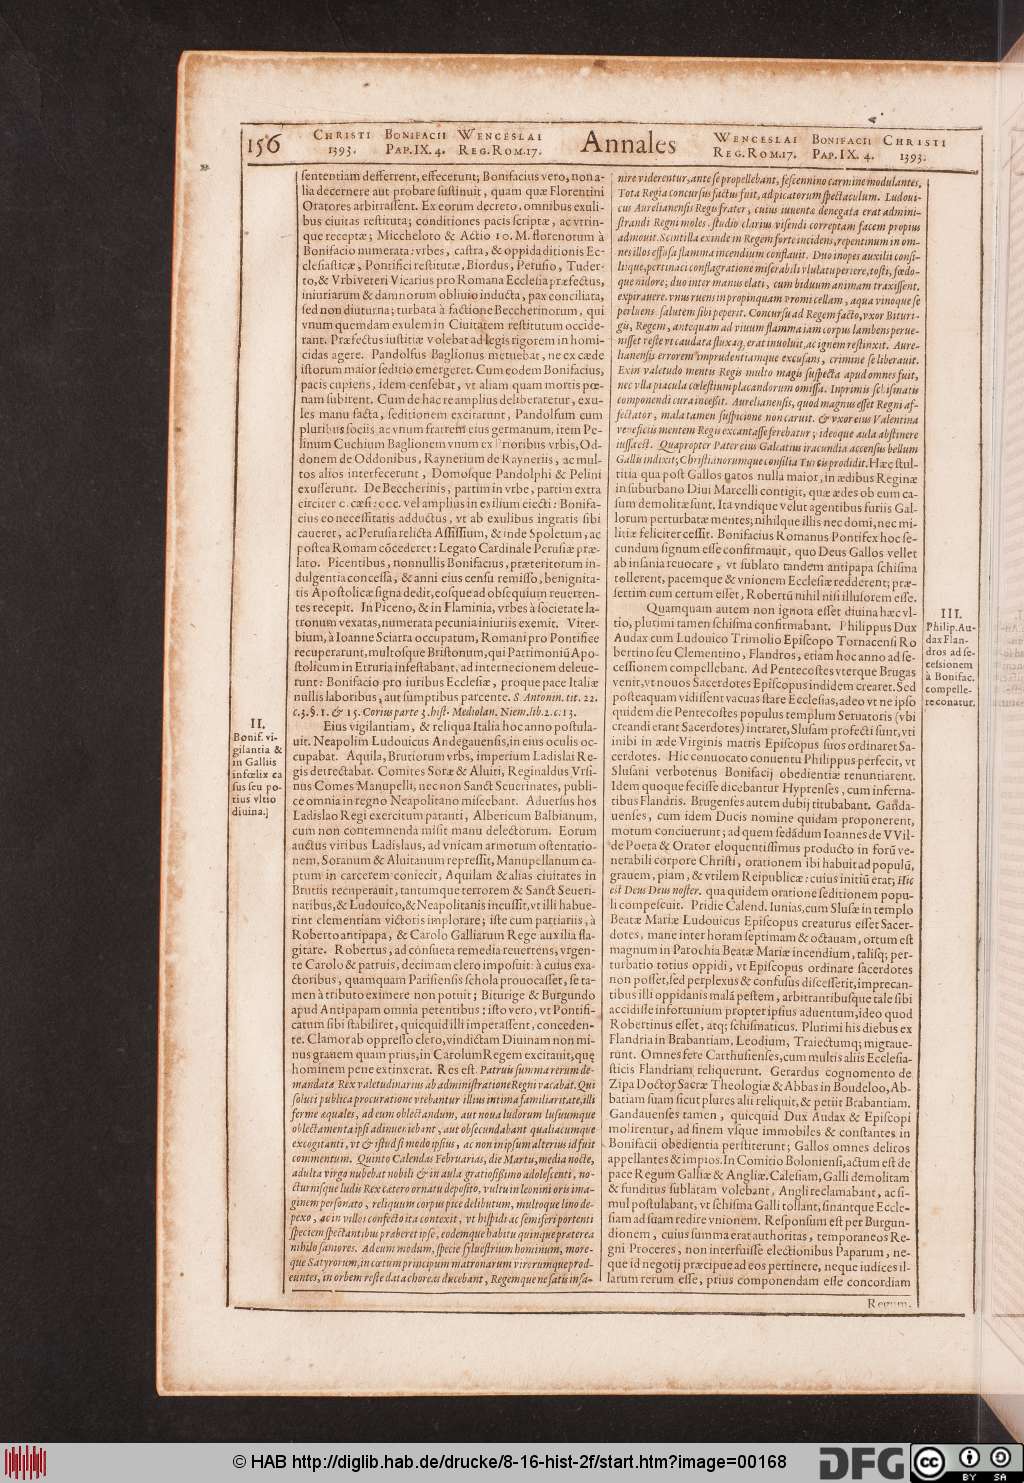 156 CHRISTI BONIFACII WENCESLAI Annales WENCESLAI BONIFACII CHRISTI
1393. PAP. IX. 4. REG. ROM. 17. REG. ROM. 17. PAP. IX. 4. 1393.
sententiam defferrent, effecerunt; Bonifacius vero, non a-
lia decernere aut probare sustinuit, quam quæ Florentini
Oratores arbitrassent. Ex eorum decreto, omnibus exuli-
bus ciuitas restituta; conditiones pacis scriptæ, ac vtrin-
que receptæ; Miccheloro & Actio 10. M. florenorum à
Bonifacio numerata: vrbes, castra, & oppida ditionis Ec-
clesiasticæ, Pontifici restitutæ, Biordus, Perusio, Tuder-
to, & Vrbiveteri Vicarius pro Romana Ecclesia præfectus,
iniuriarum & damnorum obliuio inducta, pax conciliata,
sed non diuturna; turbata à factione Beccherinorum, qui
vnum quemdam exulem in Ciuitatem restitutum occide-
rant. Præfectus iustitiæ volebat ad legis rigorem in homi-
cidas agere. Pandolfus Baglionus metuebat, ne ex cæde
istorum maior seditio emergeret. Cum eodem Bonifacius,
pacis cupiens, idem censebat, vt aliam quam mortis pœ-
nam subirent. Cum de hac re amplius deliberaretur, exu-
les manu facta, seditionem excitarunt, Pandolfum cum
pluribus sociis ac vnum fratrem eius germanum, item Pe-
linum Cuchium Baglionem vnum ex Prioribus vrbis, Od-
donem de Oddonibus, Raynerium de Rayneriis, ac mul-
tos alios interfecerunt, Domosque Pandolphi & Pelini
exusserunt. De Beccherinis, partim in vrbe, partim extra
circiter c. cæsi: cccc. vel amplius in exilium eiecti: Bonifa-
cius eo necessitatis adductus, vt ab exulibus ingratis sibi
caueret, ac Perusia relicta Assissium, & inde Spoletum, ac
postea Romam cōcederet: Legato Cardinale Perusiæ præ-
lato. Picentibus, nonnullis Bonifacius, præteritorum in-
dulgentia concessa, & anni eius censu remisso, benignita-
tis Apostolicæ signa dedit, eosque ad obsequium reuerten-
tes recepit. In Piceno, & in Flaminia, vrbes à societate la-
tronum vexatas, numerata pecunia iniuriis exemit. Viter-
bium, à Ioanne Sciarra occupatum, Romani pro Pontifice
recuperarunt, multosque Bristonum, qui Patrimoniū Apo-
stolicum in Etruria infestabant, ad internecionem deleue-
runt: Bonifacio pro iuribus Ecclesiæ, proque pace Italiæ
nullis laboribus, aut sumptibus parcente. S. Antonin. tit. 22.
c. 3. §. 1. & 15. Corius parte 3. hist. Mediolan. Niem. lib. 2. c. 13.
II.
Bonif. vi-
gilantia &
in Galliis
infœlix ca
sus seu po-
tius vltio
diuina.]
Eius vigilantiam, & reliqua Italia hoc anno postula-
uit. Neapolim Ludouicus Andegauensis, in eius oculis oc-
cupabat. Aquila, Brutiorum vrbs, imperium Ladislai Re-
gis detrectabat. Comites Soræ & Aluiti, Reginaldus Vrsi-
nus Comes Manupelli, nec non Sanct Seuerinates, publi-
ce omnia in regno Neapolitano miscebant. Aduersus hos
Ladislao Regi exercitum paranti, Albericum Balbianum,
cum non contemnenda misit manu delectorum. Eorum
auctus viribus Ladislaus, ad vnicam armorum ostentatio-
nem, Soranum & Aluitanum repressit, Manupellanum ca-
ptum in carcerem coniecit, Aquilam & alias ciuitates in
Brutiis recuperauit, tantumque terrorem & Sanct Seueri-
natibus, & Ludouico, & Neapolitanis incussit, vt illi habue-
rint clementiam victoris implorare; iste cum partiariis, à
Roberto antipapa, & Carolo Galliarum Rege auxilia fla-
gitare. Robertus, ad consueta remedia reuertens, vrgen-
te Carolo & patruis, decimam clero imposuit: à cuius exa-
ctoribus, quamquam Parisiensis schola prouocasset, se ta-
men à tributo eximere non potuit; Biturige & Burgundo
apud Antipapam omnia petentibus: isto vero, vt Pontifi-
catum sibi stabiliret, quicquid illi imperassent, conceden-
te. Clamor ab oppresso clero, vindictam Diuinam non mi-
nus grauem quam prius, in Carolum Regem excitauit, quę
hominem pene extinxerat. Res est. Patruis summa rerum de-
mandata Rex valetudinarius ab administratione Regni vacabat. Qui
soluti publica procuratione vtebantur illius intima familiaritate, illi
ferme equales, ad eum oblectandum, aut noua ludorum lusuumque
oblectamenta ipsi adinueniebant, aut obsecundabant qualiacumque
excogitanti, vt & istud si modo ipsius, ac non in ipsum alterius id fuit
commentum. Quinto Calendas Februarias, die Martis, media nocte,
adulta virgo nubebat nobili & in aula gratiosissimo adolescenti, no-
cturnisque ludis Rex catero ornatu deposito, vultu in leonini oris ima-
ginem personato, reliquum corpus pice delibutum, multoque lino de-
pexo, ac in villos confecto ita contexit, vt hispidi ac semiferi portenti
speciem spectantibus praberet ipse, eodemque habitu quinque praterea
nihilo saniores. Ad eum modum, specie syluestrium hominum, more-
que Satyrorum, in cœtum principum matronarum virorumque prod-
euntes, in orbem reste data choreas ducebant, Regemque ne satis insa-
nire viderentur, ante se propellebant, fescennino carmine modulantes.
Tota Regia concursus factus fuit, ad picatorum spectaculum. Ludoui-
cus Aurelianensis Regis frater, cuius iuuenta denegata erat admini-
strandi Regni moles, studio clarius visendi correptam facem propius
admouit. Scintilla exinde in Regem forte incidens, repentinum in om-
nes illos effosa flamma incendium conflauit. Duo inopes auxilii consi-
liique, pertinaci conflagratione miserabili vlulatu periere, tosti, fœdo-
que nidore; duo inter manus elati, cum biduum animam traxissent,
expirauere. vnus ruens in propinquam vromi cellam, aqua vinoque se
perluens, salutem sibi peperit. Concursu ad Regem facto, vxor Bituri-
gis, Regem, antequam ad viuum flamma iam corpus lambens perue-
nisset reste vt caudata fluxaq; erat inuoluit, ac ignem restinxit. Aure-
lianensis errorem imprudentiamque excusans, crimine se liberauit.
Exin valetudo mentis Regis multo magis suspecta apud omnes fuit,
nec vlla piacula cœlestium placandorum omissa. Inprimis schismatis
componendi cura incessit. Aurelianensis, quod magnus esset Regni af-
fectator, mala tamen suspicione non caruit. & vxor eius Valentina
veneficiis mentem Regis excantasse ferebatur; ideoque aula abstinere
iussa est. Quapropter Pater eius Galeatius iracundia accensus bellum
Gallis indixit; Christianorumque consilia Turcis prodidit. Hæc stul-
titia qua post Gallos natos nulla maior, in ædibus Reginæ
in suburbano Diui Marcelli contigit, quæ ædes ob eum ca-
sum demolitæ sunt. Ita vndique velut agentibus furiis Gal-
lorum perturbatæ mentes; nihilque illis nec domi, nec mi-
litiæ feliciter cessit. Bonifacius Romanus Pontifex hoc se-
cundum signum esse confirmauit, quo Deus Gallos vellet
ab insania reuocare, vt sublato tandem antipapa schisma
tollerent, pacemque & vnionem Ecclesiæ redderent; præ-
sertim cum certum esset, Robertū nihil nisi illusorem esse.
Quamquam autem non ignota esset diuina hæc vl-
tio, plutimi tamen schisma confirmabant. Philippus Dux
Audax cum Ludouico Trimolio Episcopo Tornacensi Ro
bertino seu Clementino, Flandros, etiam hoc anno ad se-
cessionem compellebant. Ad Pentecostes vterque Brugas
venit, vt nouos Sacerdotes Episcopus indidem crearet. Sed
posteaquam vidissent vacuas stare Ecclesias, adeo vt ne ipso
quidem die Pentecostes populus templum Seruatoris (vbi
creandi erant Sacerdotes) intraret, Slusam profecti sunt, vti
inibi in æde Virginis matris Episcopus suos ordinaret Sa-
cerdotes. Hic conuocato conuentu Philippus perfecit, vt
Slusani verbotenus Bonifacij obedientiæ renuntiarent.
Idem quoque fecisse dicebantur Hyprenses, cum inferna-
tibus Flandris. Brugenses autem dubij titubabant. Ganda-
uenses, cum idem Ducis nomine quidam proponerent,
motum conciuerunt; ad quem sedādum Ioannes de VVil-
de Poeta & Orator eloquentissimus producto in forū ve-
nerabili corpore Christi, orationem ibi habuit ad populū,
grauem, piam, & vtilem Reipublicæ: cuius initiū erat; Hic
est Deus Deus noster. qua quidem oratione seditionem popu-
li compescuit. Pridie Calend. Iunias, cum Slusæ in templo
Beatæ Mariæ Ludouicus Episcopus creaturus esset Sacer-
dotes, mane inter horam septimam & octauam, ortum est
magnum in Parochia Beatæ Mariæ incendium, talisq; per-
turbatio totius oppidi, vt Episcopus ordinare sacerdotes
non posset, sed perplexus & confusus discesserit, imprecan-
tibus illi oppidanis malā pestem, arbitrantibusque tale sibi
accidisse infortunium propter ipsius aduentum, ideo quod
Robertinus esset, atq; schismaticus. Plutimi his diebus ex
Flandria in Brabantiam, Leodium, Traiectumq; migraue-
runt. Omnes fere Carthusienses, cum multis aliis Ecclesia-
sticis Flandriam reliquerunt. Gerardus cognomento de
Zipa Doctor Sacræ Theologiæ & Abbas in Boudeloo, Ab-
batiam suam sicut plures alii reliquit, & petiit Brabantiam.
Gandauenses tamen, quicquid Dux Audax & Episcopi
molirentur, ad finem vsque immobiles & constantes in
Bonifacii obedientia perstiterunt; Gallos omnes deliros
appellantes & impios. In Comitio Boloniensi, actum est de
pace Regum Galliæ & Angliæ. Calesiam, Galli demolitam
& funditus sublatam volebant, Angli reclamabant, ac si-
mul postulabant, vt schisma Galli tollant, sinantque Eccle-
siam ad suam redire vnionem. Responsum est per Burgun-
dionem, cuius summa erat authoritas, temporaneos Re-
gni Proceres, non interfuisse electionibus Paparum, ne-
que id negotij præcipue ad eos pertinere, neque iudices il-
larum rerum esse, prius componendam esse concordiam
Regum.
III.
Philip. Au-
dax Flan-
dros ad se-
cessionem
à Bonifac.
compelle-
re conatur.
© HAB http://diglib.hab.de/drucke/8-16-hist-2f/start.htm?image=00168
DFG
cc
BY SA